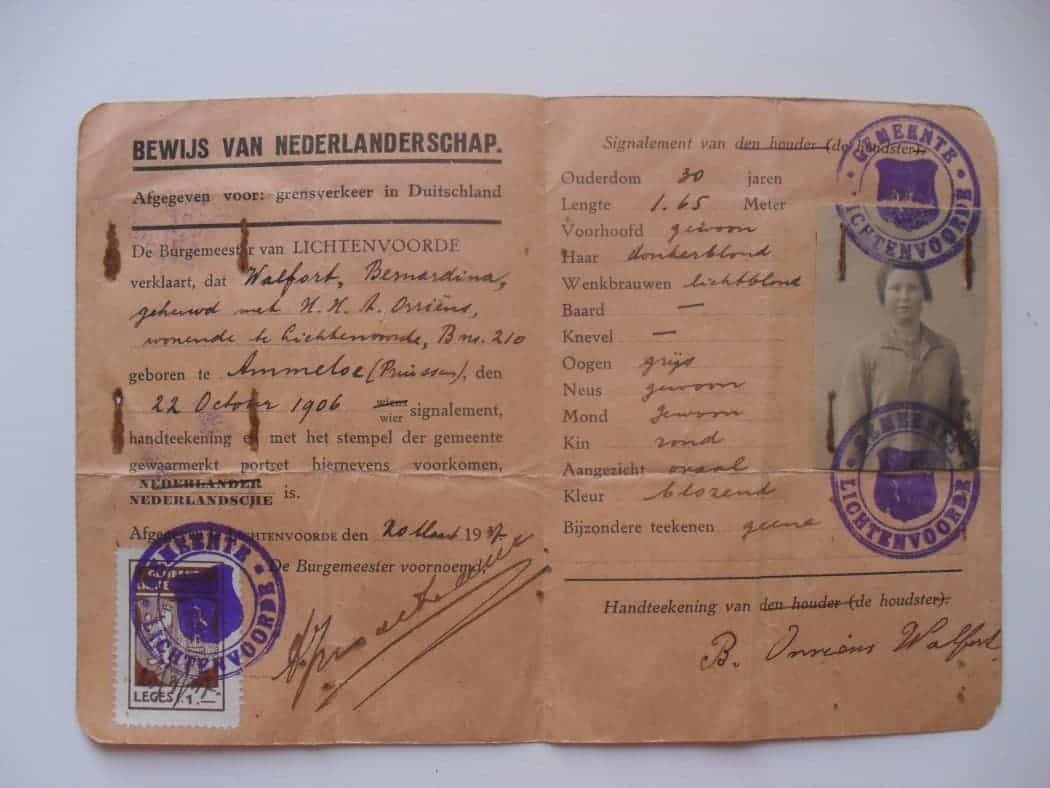 BEWIJS VAN NEDERLANDERSCHAP.
Afgegeven voor: grensverkeer in Duitschland
De Burgemeester van LICHTENVOORDE
verklaart, dat Walfort, Bernardina,
gehuwd met H. H. A. Orriëns,
wonende te Lichtenvoorde, B no. 210
geboren te Ammeloe (Pruissen), den
22 October 1906 wiens
wier signalement,
handteekening en met het stempel der gemeente
gewaarmerkt portret hiernevens voorkomen,
NEDERLANDER
NEDERLANDSCHE is.
Afgegeven te LICHTENVOORDE den 20 Maart 1937.
De Burgemeester voornoemd,
GEMEENTE LICHTENVOORDE
LEGES f. 1.—
Signalement van den houder (de houdster).
Ouderdom 30 jaren
Lengte 1.65 Meter
Voorhoofd gewoon
Haar donkerblond
Wenkbrauwen lichtblond
Baard —
Knevel —
Oogen grijs
Neus gewoon
Mond gewoon
Kin rond
Aangezicht ovaal
Kleur blozend
Bijzondere teekenen geene
GEMEENTE LICHTENVOORDE
GEMEENTE LICHTENVOORDE
Handteekening van den houder (de houdster).
B. Orriëns Walfort